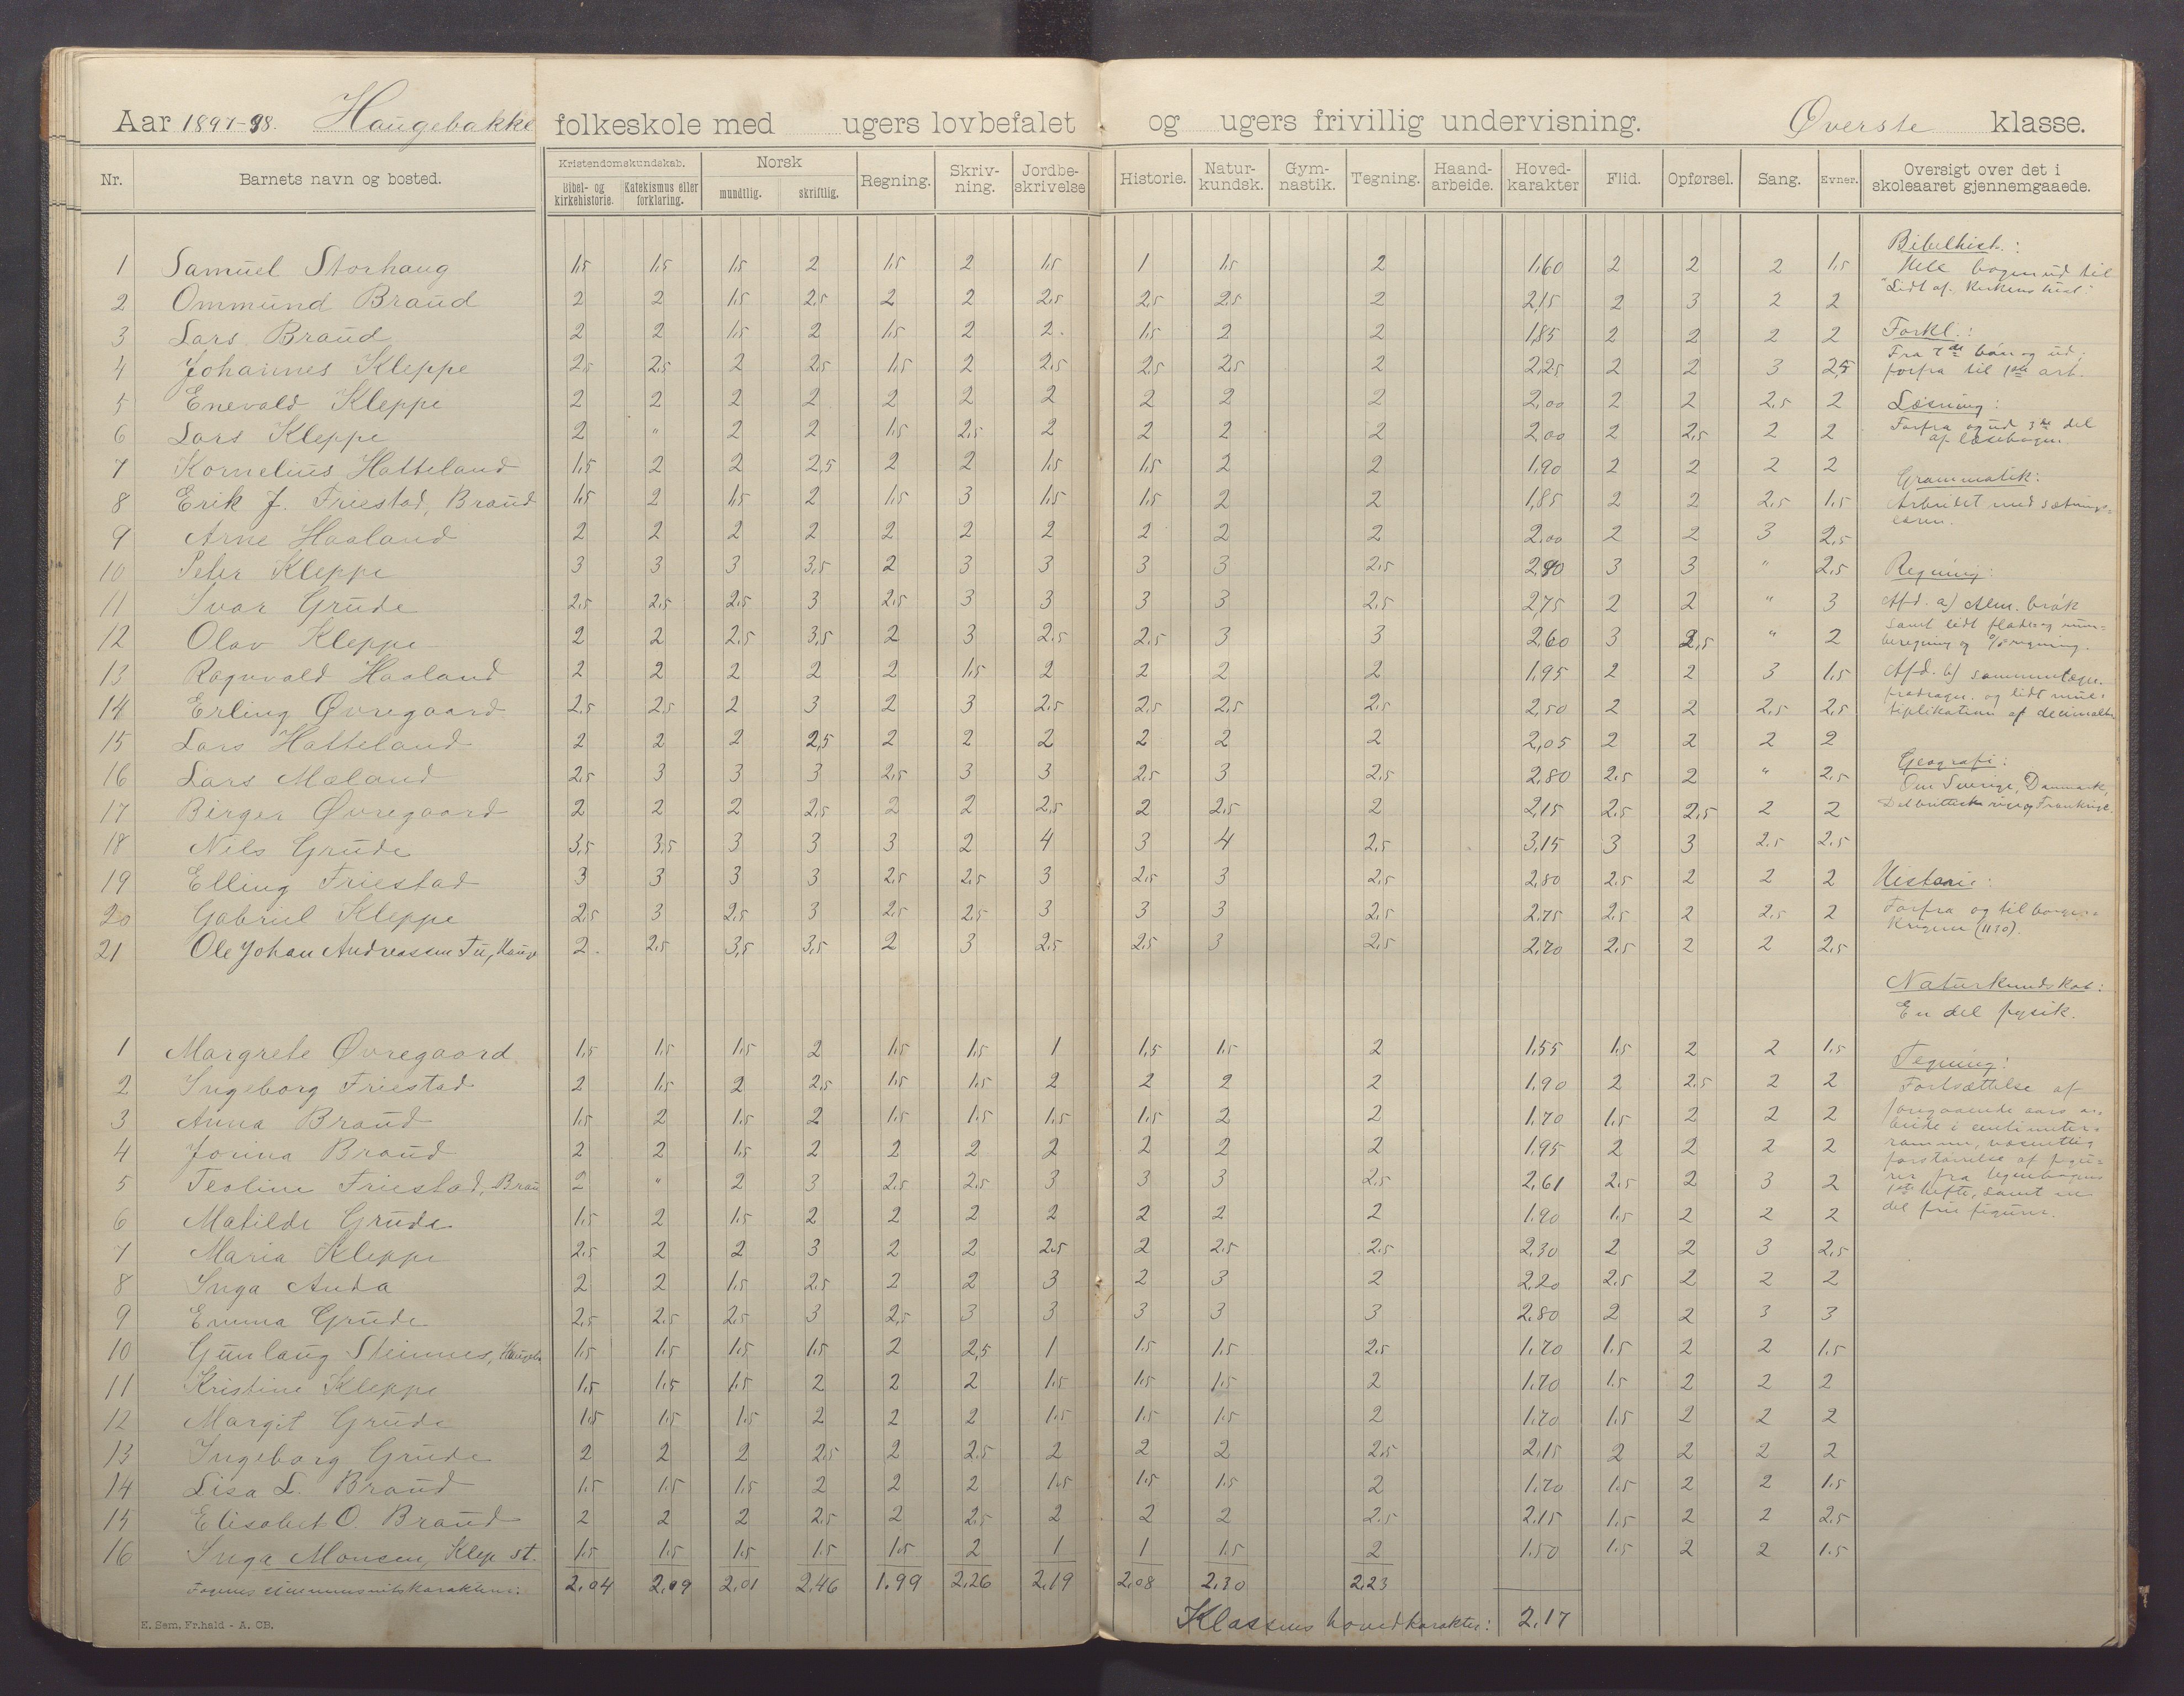 Aar 1897-98. Haugebakke folkeskole med ugers lovbefalet og ugers frivillig undervisning. Øverste klasse.
Nr. Barnets navn og bosted. Kristendomskundskab. Bibel- og kirkehistorie. Katekismus eller forklaring. Norsk mundtlig. skriftlig. Regning. Skriv-ning. Jordbe-skrivelse Historie. Natur-kundsk. Gym-nastik. Tegning. Haand-arbeide. Hoved-karakter Flid. Opførsel. Sang. Evner. Oversigt over det i skoleaaret gjennemgaaede.
1 Samuel Storhaug 1,5 1,5 1,5 2 1,5 2 1,5 1 1,5 2 1,60 2 2 2 1,5
2 Ommund Braud 2 2 1,5 2,5 2 2 2,5 2,5 2,5 2 2,15 2 3 2 2
3 Lars Braud 2 2 1,5 2 1,5 2 2. 1,5 2 2 1,85 2 2 2 2
4 Johannes Kleppe 2,5 2,5 2 2,5 1,5 2 2,5 2,5 2,5 2 2,25 2 2 3 2,5
5 Enevald Kleppe 2 2 2 2 2 2 2 2 2 2 2,00 2 2 2,5 2
6 Lars Kleppe 2 " 2 2 1,5 2,5 2 2 2 2 2,00 2 2,5 2 2
7 Kornelius Hatteland 1,5 2 2 2,5 2 2 1,5 1,5 2 2 1,90 2 2 2 2
8 Erik J. Friestad, Braud 1,5 2 1,5 2 1,5 3 1,5 1,5 2 2 1,85 2 2 2,5 1,5
9 Arne Haaland 2 2 2 2 2 2 2 2 2 2 2,00 2 2 3 2,5
10 Peter Kleppe 3 3 3 3,5 2 3 3 3 3 2,5 2,90 3 3 " 2,5
11 Ivar Grude 2,5 2,5 2,5 3 2,5 3 3 3 3 2,5 2,75 2 2 " 3
12 Olav Kleppe 2 2 2,5 3,5 2 3 2,5 2,5 3 3 2,60 3 2,5 " 2
13 Ragnvald Haaland 2 2 2 2 2 1,5 2 2 2 2 1,95 2 2 3 1,5
14 Erling Øvregaard 2,5 2,5 2 3 2 3 2,5 2,5 2,5 2,5 2,50 2 2 2,5 2,5
15 Lars Hatteland 2 2 2 2,5 2 2 2 2 2 2 2,05 2 2 2 2
16 Lars Mæland 2,5 3 3 3 2,5 3 3 2,5 3 2,5 2,80 2,5 2 " 2,5
17 Birger Øvregaard 2 2 2 2,5 2 2 2,5 2 2,5 2 2,15 2,5 2,5 2 2
18 Nils Grude 3,5 3,5 3 3 3 2 4 3 4 2,5 3,15 3 3 2,5 2,5
19 Elling Friestad 3 3 3 3 2,5 2,5 3 2,5 3 2,5 2,80 2,5 2 2 2
20 Gabriel Kleppe 2,5 3 2,5 3 2,5 2,5 3 3 3 2,5 2,75 2,5 2 2,5 2
21 Ole Johan Andreassen Tu, Hauge 2. 2,5 3,5 3,5 2 3 2,5 2,5 3 2,5 2,70 2,5 2 2 2,5
1 Margrete Øvregaard. 1,5 1,5 1,5 2 1,5 1,5 1 1,5 1,5 2 1,55 1,5 2 2 1,5
2 Ingeborg Friestad 2 1,5 2 2,5 1,5 1,5 2 2 2 2 1,90 2 2,5 2 2
3 Anna Braud 1,5 2 1,5 2 1,5 1,5 1,5 1,5 2 2 1,70 1,5 2 2 2
4 Jorina Braud 2 2 1,5 2 2 2 2 2 2 2 1,95 2 2 2 2
5 Teoline Friestad, Brau 2 " 2 3 2,5 2,5 3 3 3 2,5 2,61 2,5 2 3 2
6 Matilde Grude 1,5 2 1,5 2 2 2 2 2 2 2 1,90 1,5 2 2 2
7 Maria Kleppe 2,5 2 2 3 2 2 2,5 2 2,5 2,5 2,30 2 2 3 2,5
8 Inga Anda 2 2 1,5 2,5 2 2 3 2 3 2 2,20 2,5 2 2 2
9 Emma Grude 2,5 2,5 2,5 3 2,5 3 3 3 3 3 2,80 2 2 3 3
10 Gunlaug Steinnes, Haugeb 1,5 1,5 1,5 1,5 2 2,5 1 1,5 1,5 2,5 1,70 1,5 2 2 1,5
11 Kristine Kleppe 1,5 1,5 1,5 2 2 2 1,5 1,5 1,5 2 1,70 1,5 2 2 2
12 Margit Grude 1,5 1,5 1,5 2 2 2 1,5 1,5 1,5 2 1,70 1,5 2 2 2
13 Ingeborg Grude 2 2 2 2,5 2 2,5 2 2 2 2,5 2,15 2 2 2 2
14 Lisa L. Braud 1,5 1,5 1,5 2 2 2 1,5 1,5 1,5 2 1,70 1,5 2 2 1,5
15 Elisabet O. Braud 2 2 2 2,5 2 2,5 2 2 2 2,5 2,15 1,5 2 2 2,5
16 Inga Monsen, Klep st. 1,5 1,5 1,5 1,5 1,5 2 1 1 1,5 2 1,50 1,5 2 2 1,5
Fagenes 2,04 2,09 2,01 2,46 1,99 2,26 2,19 2,08 2,30 2,23
Klassens hovedkarakter: 2,17
K. Sem. Fr.hald - A. CB.
Bibelhist.:
Hele bogen ud til
"Lidt af kirkens hist."
Forkl.:
Fra 7de bøn og ud;
forfra til 1ste art.
Læsning:
Forfra og ud 3die del
af læsebogen.
Grammatik:
Arbeidet med sætnings-
læren.
Regning:
Afd. a) Alm. brøk
samt lidt flade og rum-
beregning og % regning.
Afd. b) sammenlægn.
fradragn. og lidt mul-
tiplikation af decimalbr
Geografi:
Om Sverige, Danmark,
Det brittiske rige og Frankrige.
Historie:
Forfra og til borger-
krigene (1130).
Naturkundskab:
En del fysik.
Tegning:
Fortsættelse af
foregaaende aars ar-
beide i centimeter-
rammer, væsentlig
forstørrelse af figu-
rer fra tegnebogens
1ste hefte, samt en
del frie figurer.